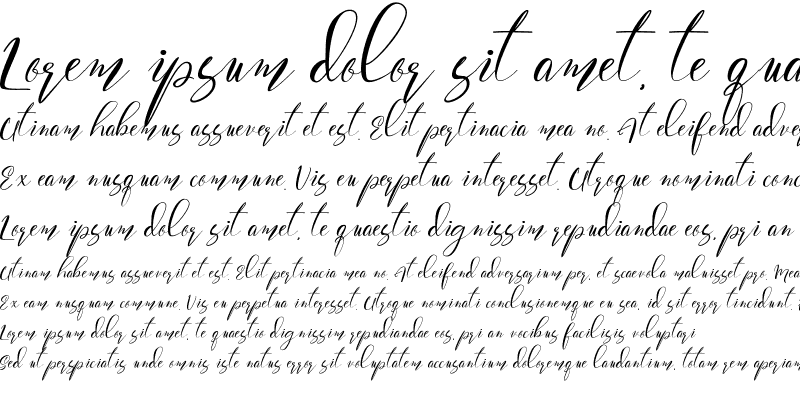 Lorem ipsum dolor sit amet, te qua
Utinam habemus assueverit et est. Elit pertinacia mea no. At eleifend adver
Ex eam nusquam commune. Vis eu perpetua interesset. Utroque nominati conc
Lorem ipsum dolor sit amet, te quaestio dignissim repudiandae eos, pri an
Utinam habemus assueverit et est. Elit pertinacia mea no. At eleifend adversarium per, et scaevola maluisset pro. Mea
Ex eam nusquam commune. Vis eu perpetua interesset. Utroque nominati conclusionemque eu sea, id sit error tincidunt.
Lorem ipsum dolor sit amet, te quaestio dignissim repudiandae eos, pri an vocibus facilisis voluptari
Sed ut perspiciatis unde omnis iste natus error sit voluptatem accusantium doloremque laudantium, totam rem aperiam